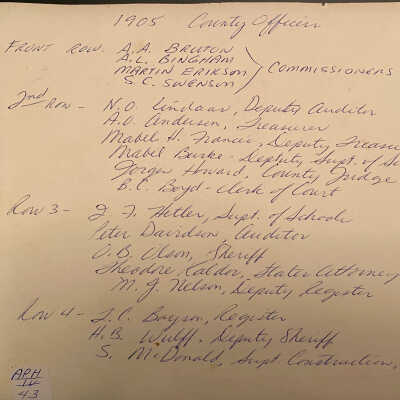 1905 County Officers
FRONT ROW. A.A. BRUTON
A.L. BINGHAM
MARTIN ERIKSON
S.C. SWENSON
COMMISSIONERS
2nd Row - N.O. Lindaas, Deputy Auditor
A.O. Andersen, Treasurer
Mabel H. Francis, Deputy Treasu
Mabel Burke - Deputy Supt. of Sc
Jorgen Howard, County Judge
B.C. Boyd - Clerk of Court
Row 3 - J. F. Hetler, Supt. of Schools
Peter Davidson, Auditor
O.B. Olson, Sheriff
Theodore Kaldor, States Attorney
M. J. Nelson, Deputy Register
Row 4 - J.C. Bayson, Register
H.B. Wulff, Deputy Sheriff
S. McDonald, Supt Construction,
APH
IV
43